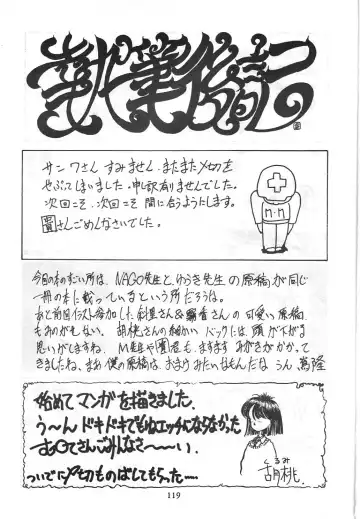 執筆後記
サンワさん すみません、またまた〆切を
やぶってしまいました。申し訳有りませんでした。
次回こそ、次回こそ 間に合うようにします。
さんごめんなさいでした。
m・m
今回の本のすごい所は、NAGO先生と、ゆうき先生の原稿が同じ
一冊の本に載っているという所だろう。
あと前回イラスト参加した、さん&さんの可愛い原稿
もみのがせない。胡桃さんの細かいバックには、頭が下がる
思いがしますね。M先生や闇君も、ますますみがきがかかって
きましたね。まあ僕の原稿は、おまけみたいなもんだな うん
始めてマンガを描きました。
う〜ん ドキドキでもねェッチにならなかった
さんごみんなさ〜〜〜い。
ついでに〆切ものばしてもらった……
くるみ
胡桃
119